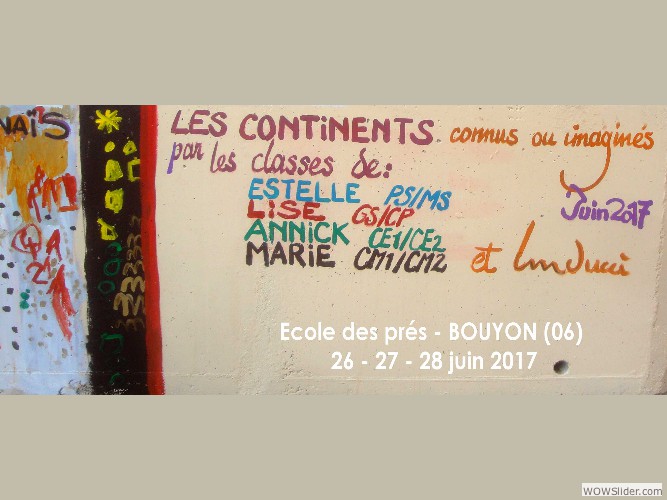 NAÏS
LES CONTINENTS connus ou imaginés
par les classes de:
ESTELLE PS/MS
Juin 2017
LISE GS/CP
ANNICK CE1/CE2
MARIE CM1/CM2 et
Ecole des prés - BOUYON (06)
26 - 27 - 28 juin 2017
WOWSlider.com